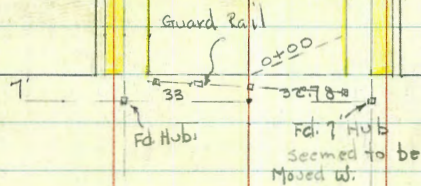 Guard Rail
0+00
7'
33
32.78
Fd. Hub.
Fd. 7' Hub
seemed to be
Moved W.